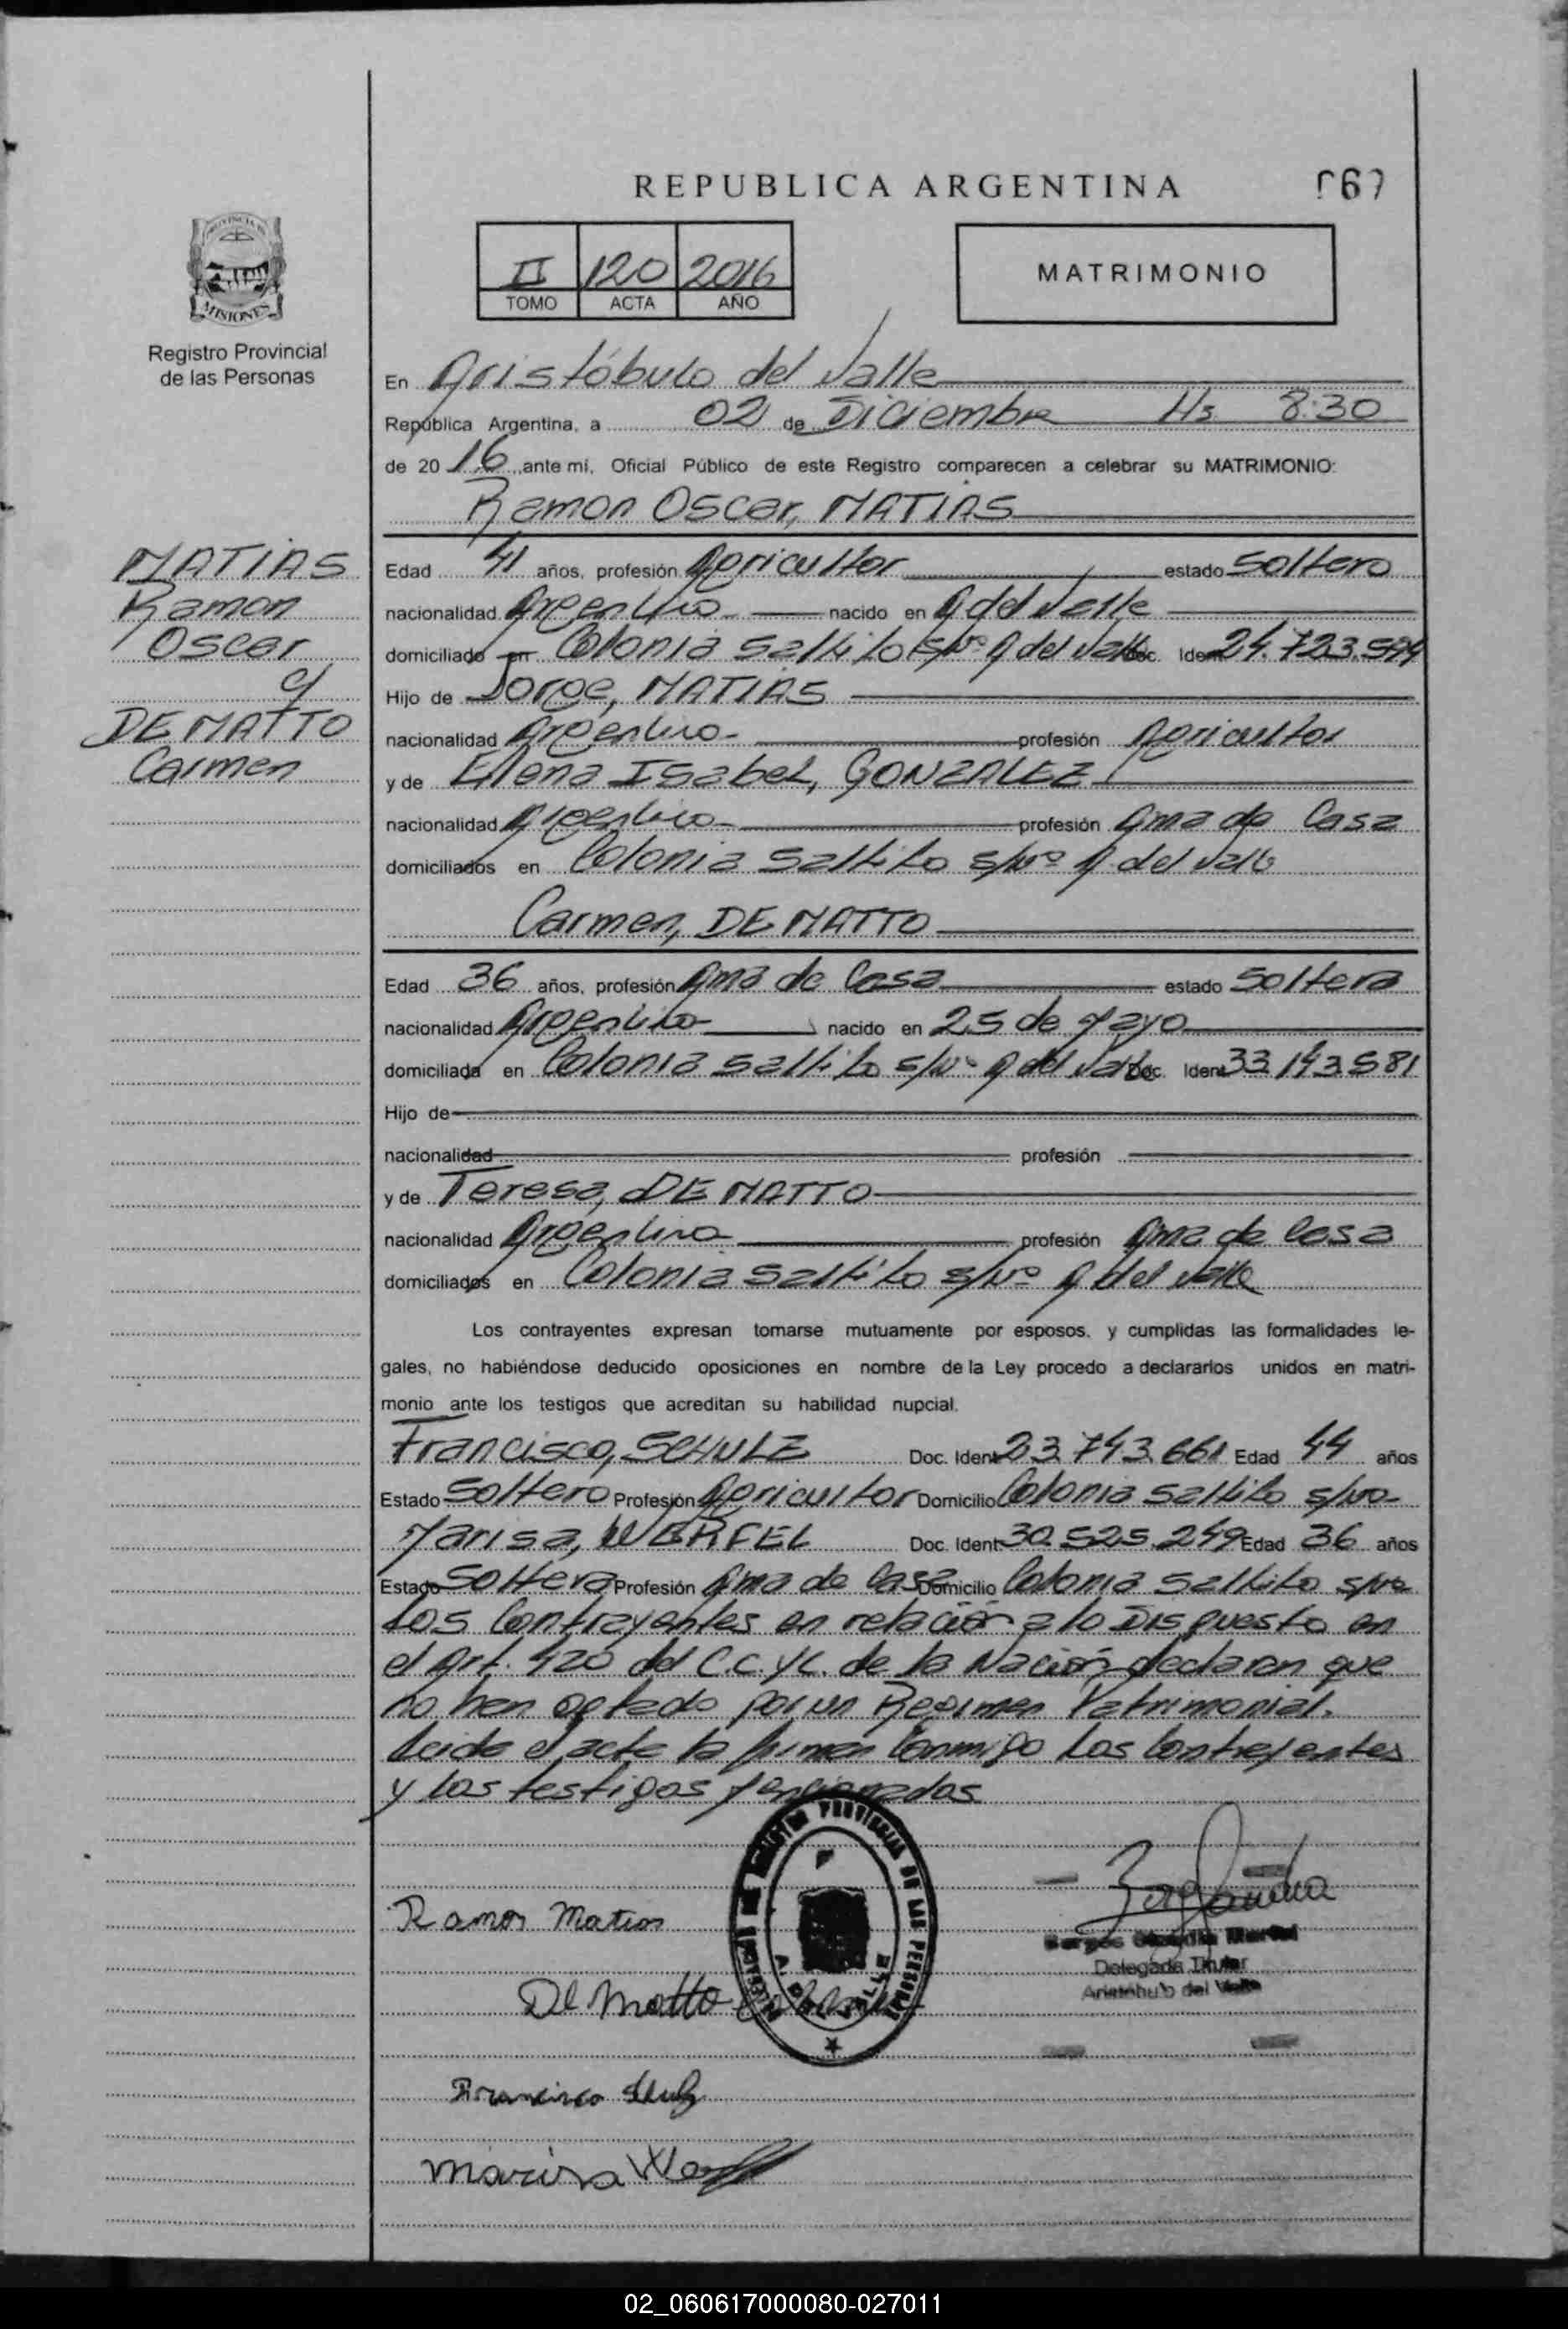 REPUBLICA ARGENTINA
II 120 2016
TOMO ACTA AÑO
MATRIMONIO
MISIONES
Registro Provincial
de las Personas
En Aristóbulo del Valle
República Argentina, a 02 de Diciembre Hs 8:30
de 2016 ante mi, Oficial Público de este Registro comparecen a celebrar su MATRIMONIO:
Ramon Oscar, MATIAS
MATIAS
Ramon
Oscar
c/
DE MATTO
Carmen
Edad 41 años, profesión Agricultor estado Soltero
nacionalidad Argentino nacido en A del Valle
domiciliado en Colonia Saltito s/Nº A del Valle Doc. Ident 24.723.594
Hijo de Jorge, MATIAS
nacionalidad Argentino profesión Agricultor
y de Elena Isabel, GONZALEZ
nacionalidad Argentina profesión Ama de Casa
domiciliados en Colonia Saltito s/Nº A del Valle
Carmen, DE MATTO
Edad 36 años, profesión Ama de Casa estado Soltera
nacionalidad Argentina nacido en 25 de Mayo
domiciliada en Colonia Saltito s/Nº A del Valle Doc. Ident 33.143.581
Hijo de
nacionalidad profesión
y de Teresa, DE MATTO
nacionalidad Argentina profesión Ama de Casa
domiciliados en Colonia Saltito s/Nº A del Valle
Los contrayentes expresan tomarse mutuamente por esposos, y cumplidas las formalidades le-
gales, no habiéndose deducido oposiciones en nombre de la Ley procedo a declararlos unidos en matri-
monio ante los testigos que acreditan su habilidad nupcial.
Francisco, SCHULZ Doc. Ident 23.743.661 Edad 44 años
Estado Soltero Profesión Agricultor Domicilio Colonia Saltito s/Nº
Marisa, WERFEL Doc. Ident 30.525.249 Edad 36 años
Estado Soltera Profesión Ama de Casa Domicilio Colonia Saltito s/Nº
Los Contrayentes en relación a lo Dispuesto en
el Art. 420 del C.C.yC. de la Nación declaran que
no han optado por un Regimen Patrimonial.
Leida el acta la firman Conmigo Los Contrayentes
y los testigos Mencionados
Ramon Matias
De Matto Carmen
Delegada Titular
Aristóbulo del Valle
Francisco Schulz
Marisa
02_060617000080-027011